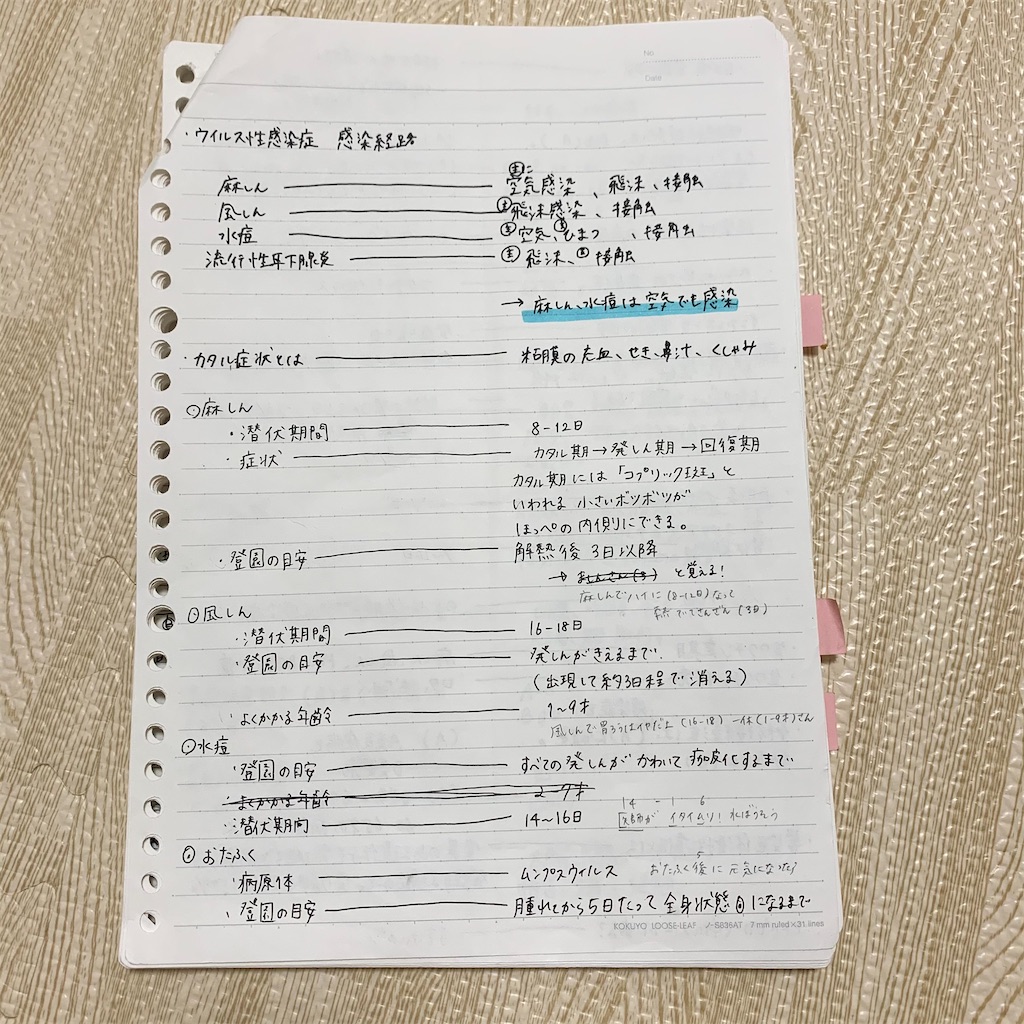 No
Date
・ウイルス性感染症 感染経路
主に
麻しん 空気感染、飛沫、接触
風しん 主飛沫感染、接触
水痘 主空気、主ひまつ、接触
流行性耳下腺炎 主飛沫、主接触
→ 麻しん、水痘は空気でも感染
・カタル症状とは 粘膜の充血、せき、鼻汁、くしゃみ
麻しん
・潜伏期間 8-12日
・症状 カタル期→発しん期→回復期
カタル期には「コプリック斑」と
いわれる小さいボツボツが
ほっぺの内側にできる。
・登園の目安 解熱後3日以降
→ と覚える!
麻しんでハイに(8-12日)なって
熱でてさんざん(3日)
風しん
・潜伏期間 16-18日
・登園の目安 発しんがきえるまで.
(出現して約3日程で消える)
・よくかかる年齢 1~9才
風しんで胃ろうはイヤだよ(16-18) 一休(1-9才)さん
水痘
・登園の目安 すべての発しんがかわいて痂皮化するまで
・よくかかる年齢 2-9才
14 - 1 6
・潜伏期间 14~16日 イタイムリ!ればうそう
おたふく
・病原体 ムンプスウイルス おたふく後に元気になったら
5
・登園の目安 腫れてから5日たって全身状態良になるまで
KOKUYO LOOSE-LEAF ノ-S836AT 7mm ruled×31 lines